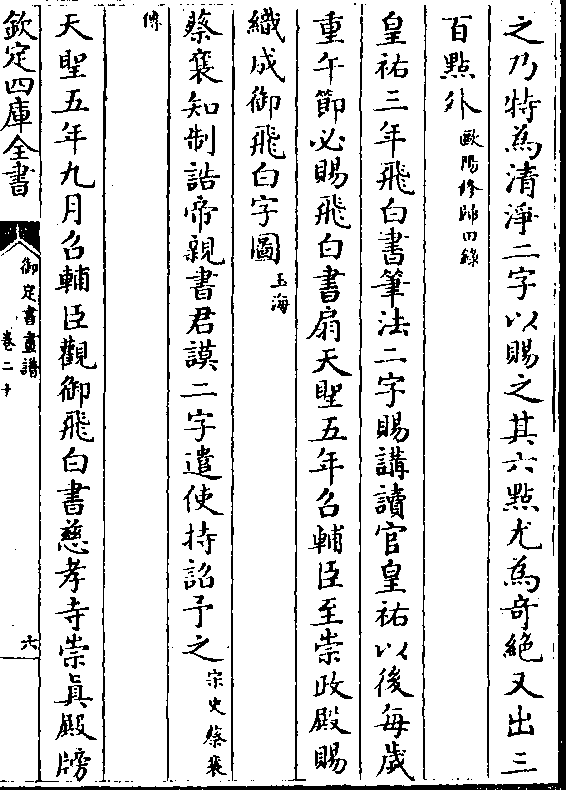 之乃特為清淨二字以賜之其六點尤為奇絶又出三
百點外歐陽修歸田錄
皇祐三年飛白書筆法二字賜講讀官皇祐以後每歲
重午節必賜飛白書扇天聖五年召輔臣至崇政殿賜
織成御飛白字圖玉海
蔡襄知制誥帝親書君謨二字遣使持詔予之宋史蔡襄
傳
天聖五年九月召輔臣觀御飛白書慈孝寺崇真殿牓
欽定四庫全書
御定書畫譜
卷二十
六